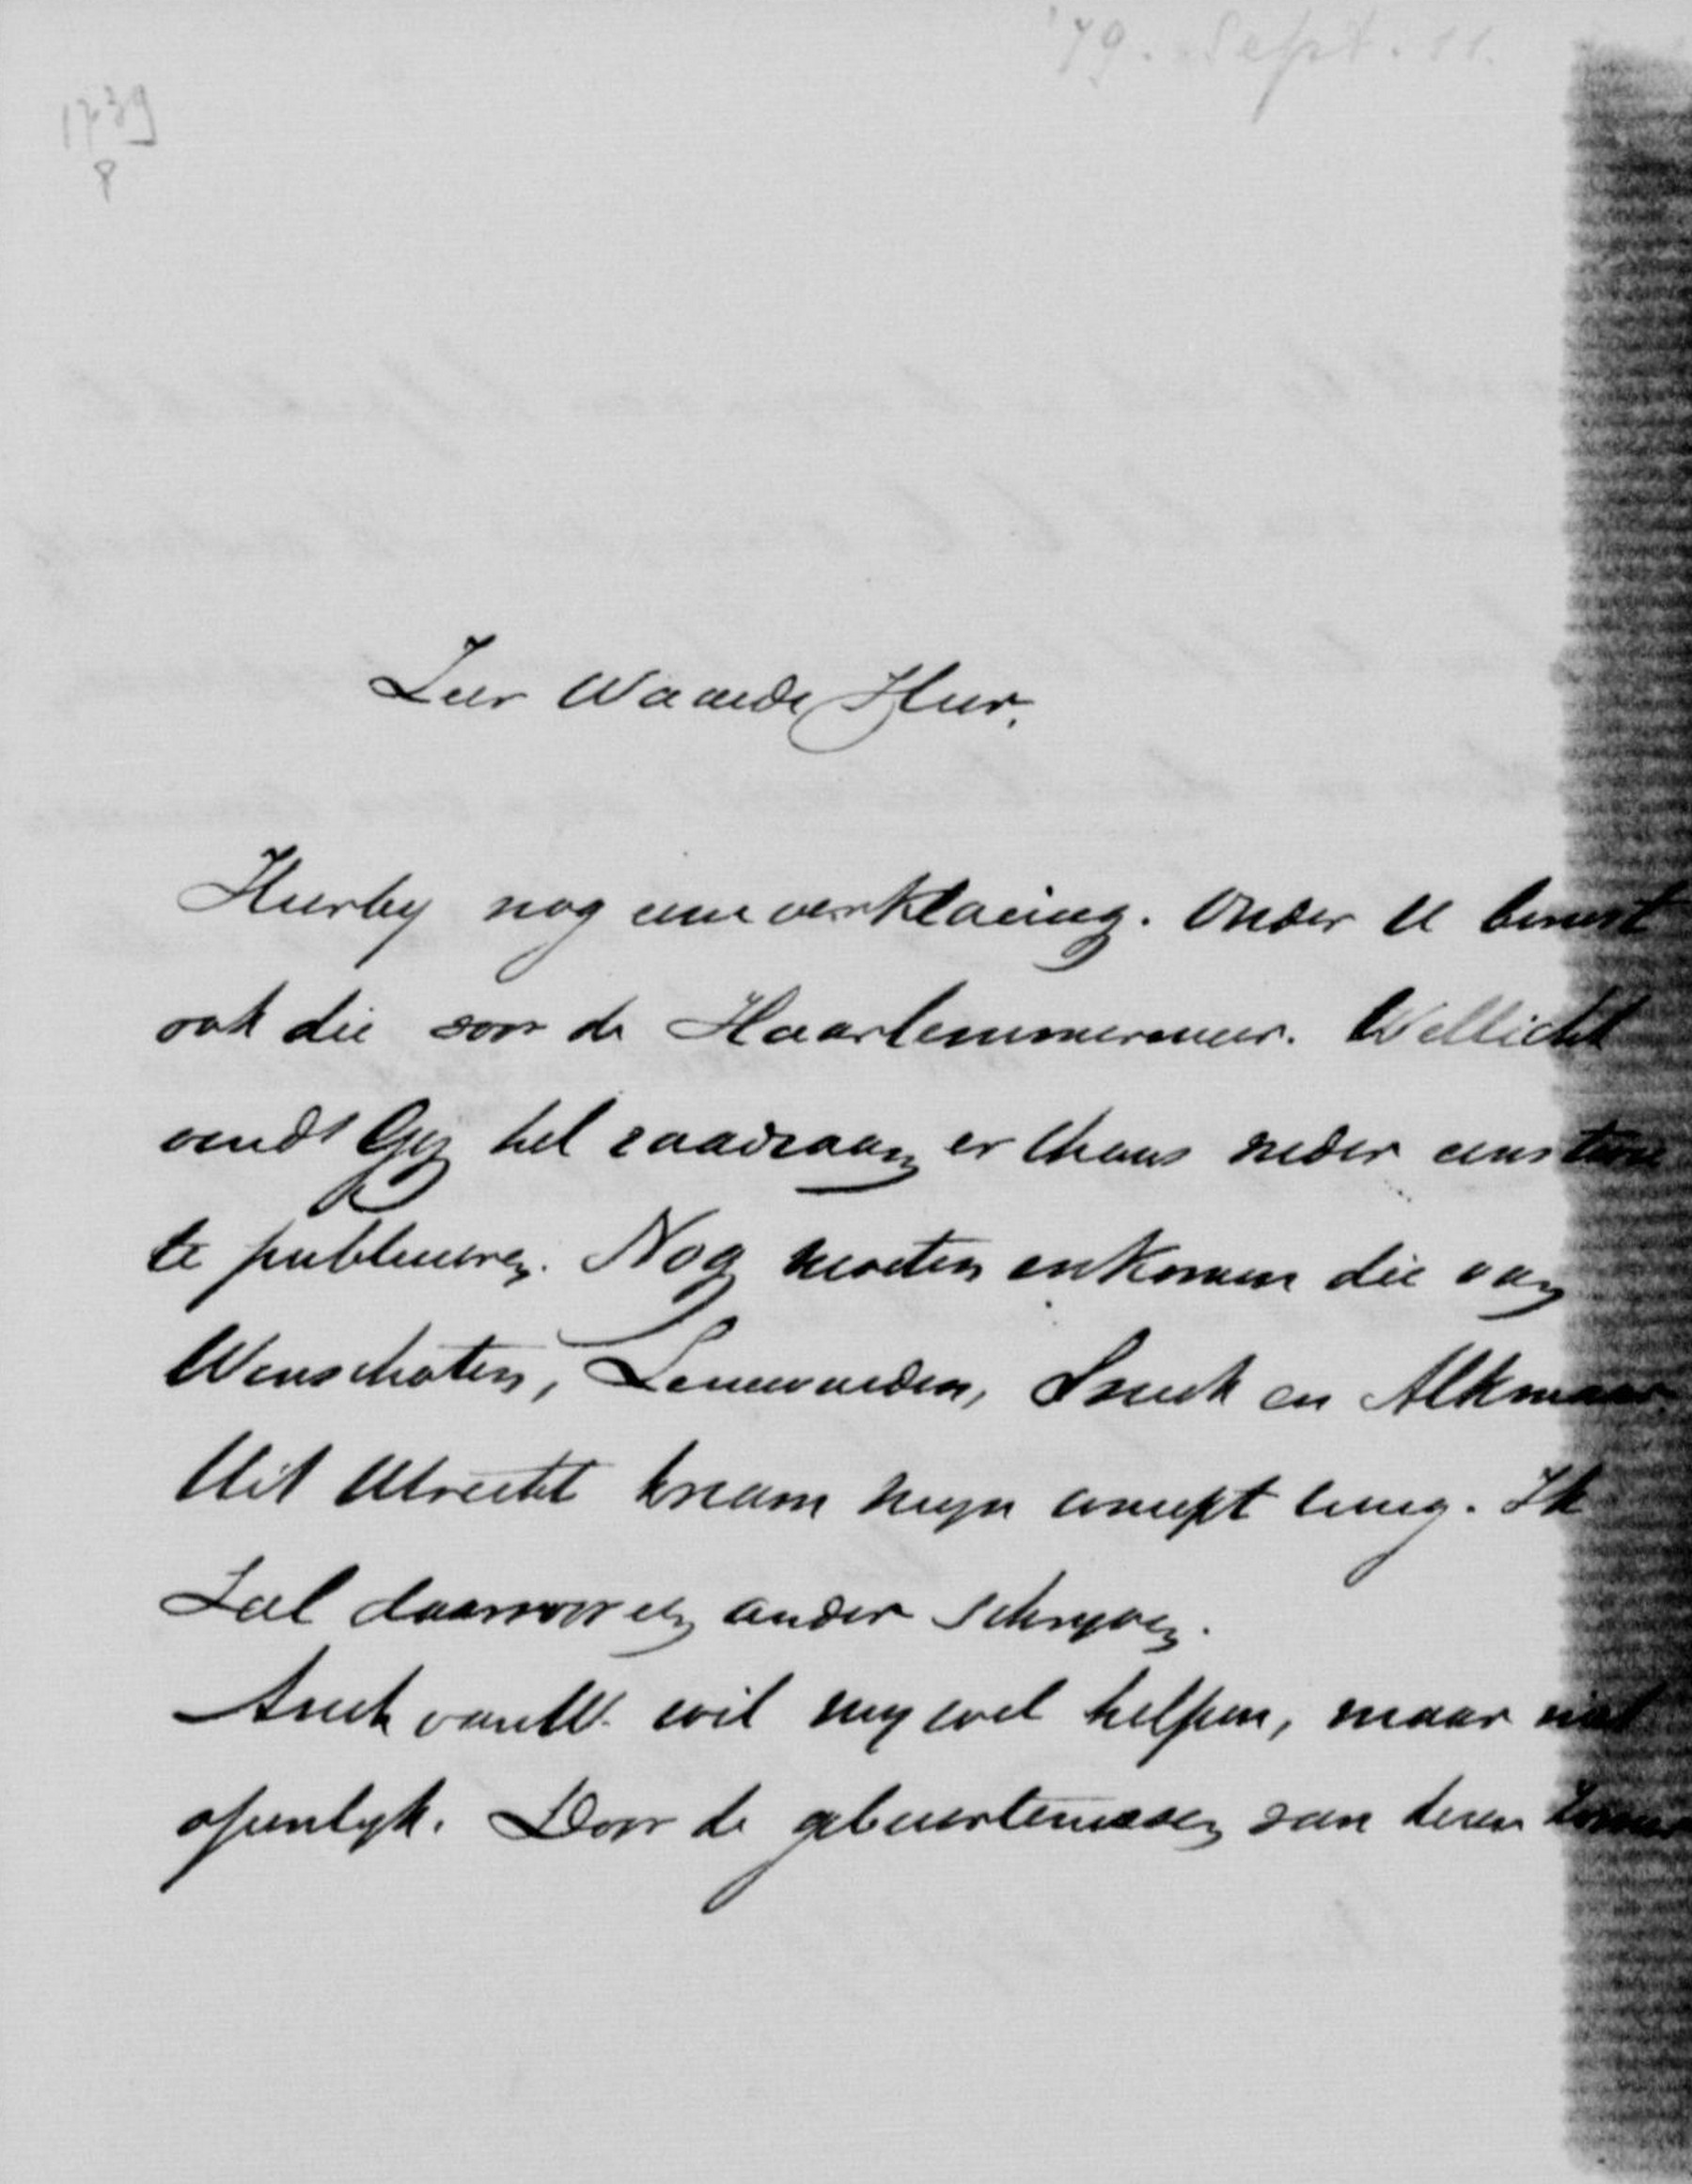 '79. Sept. 11.
1739
P
Zeer Waarde Heer,
Hierby nog eene verklaring. Onder U berust
ook die voor de Haarlemmermeer. Wellicht
vindt Gy het raadzaam er thans weder eens
te publiceren. Nog moeten inkomen die van
Winschoten, Leeuwarden, Sneek en Alkmaar.
Uit Utrecht kwam myn concept terug. Ik
Zal daarvoor een ander schryven.
van W. wil my wel helpen, maar niet
openlyk. Door de gebeurtenissen van dezen zomer